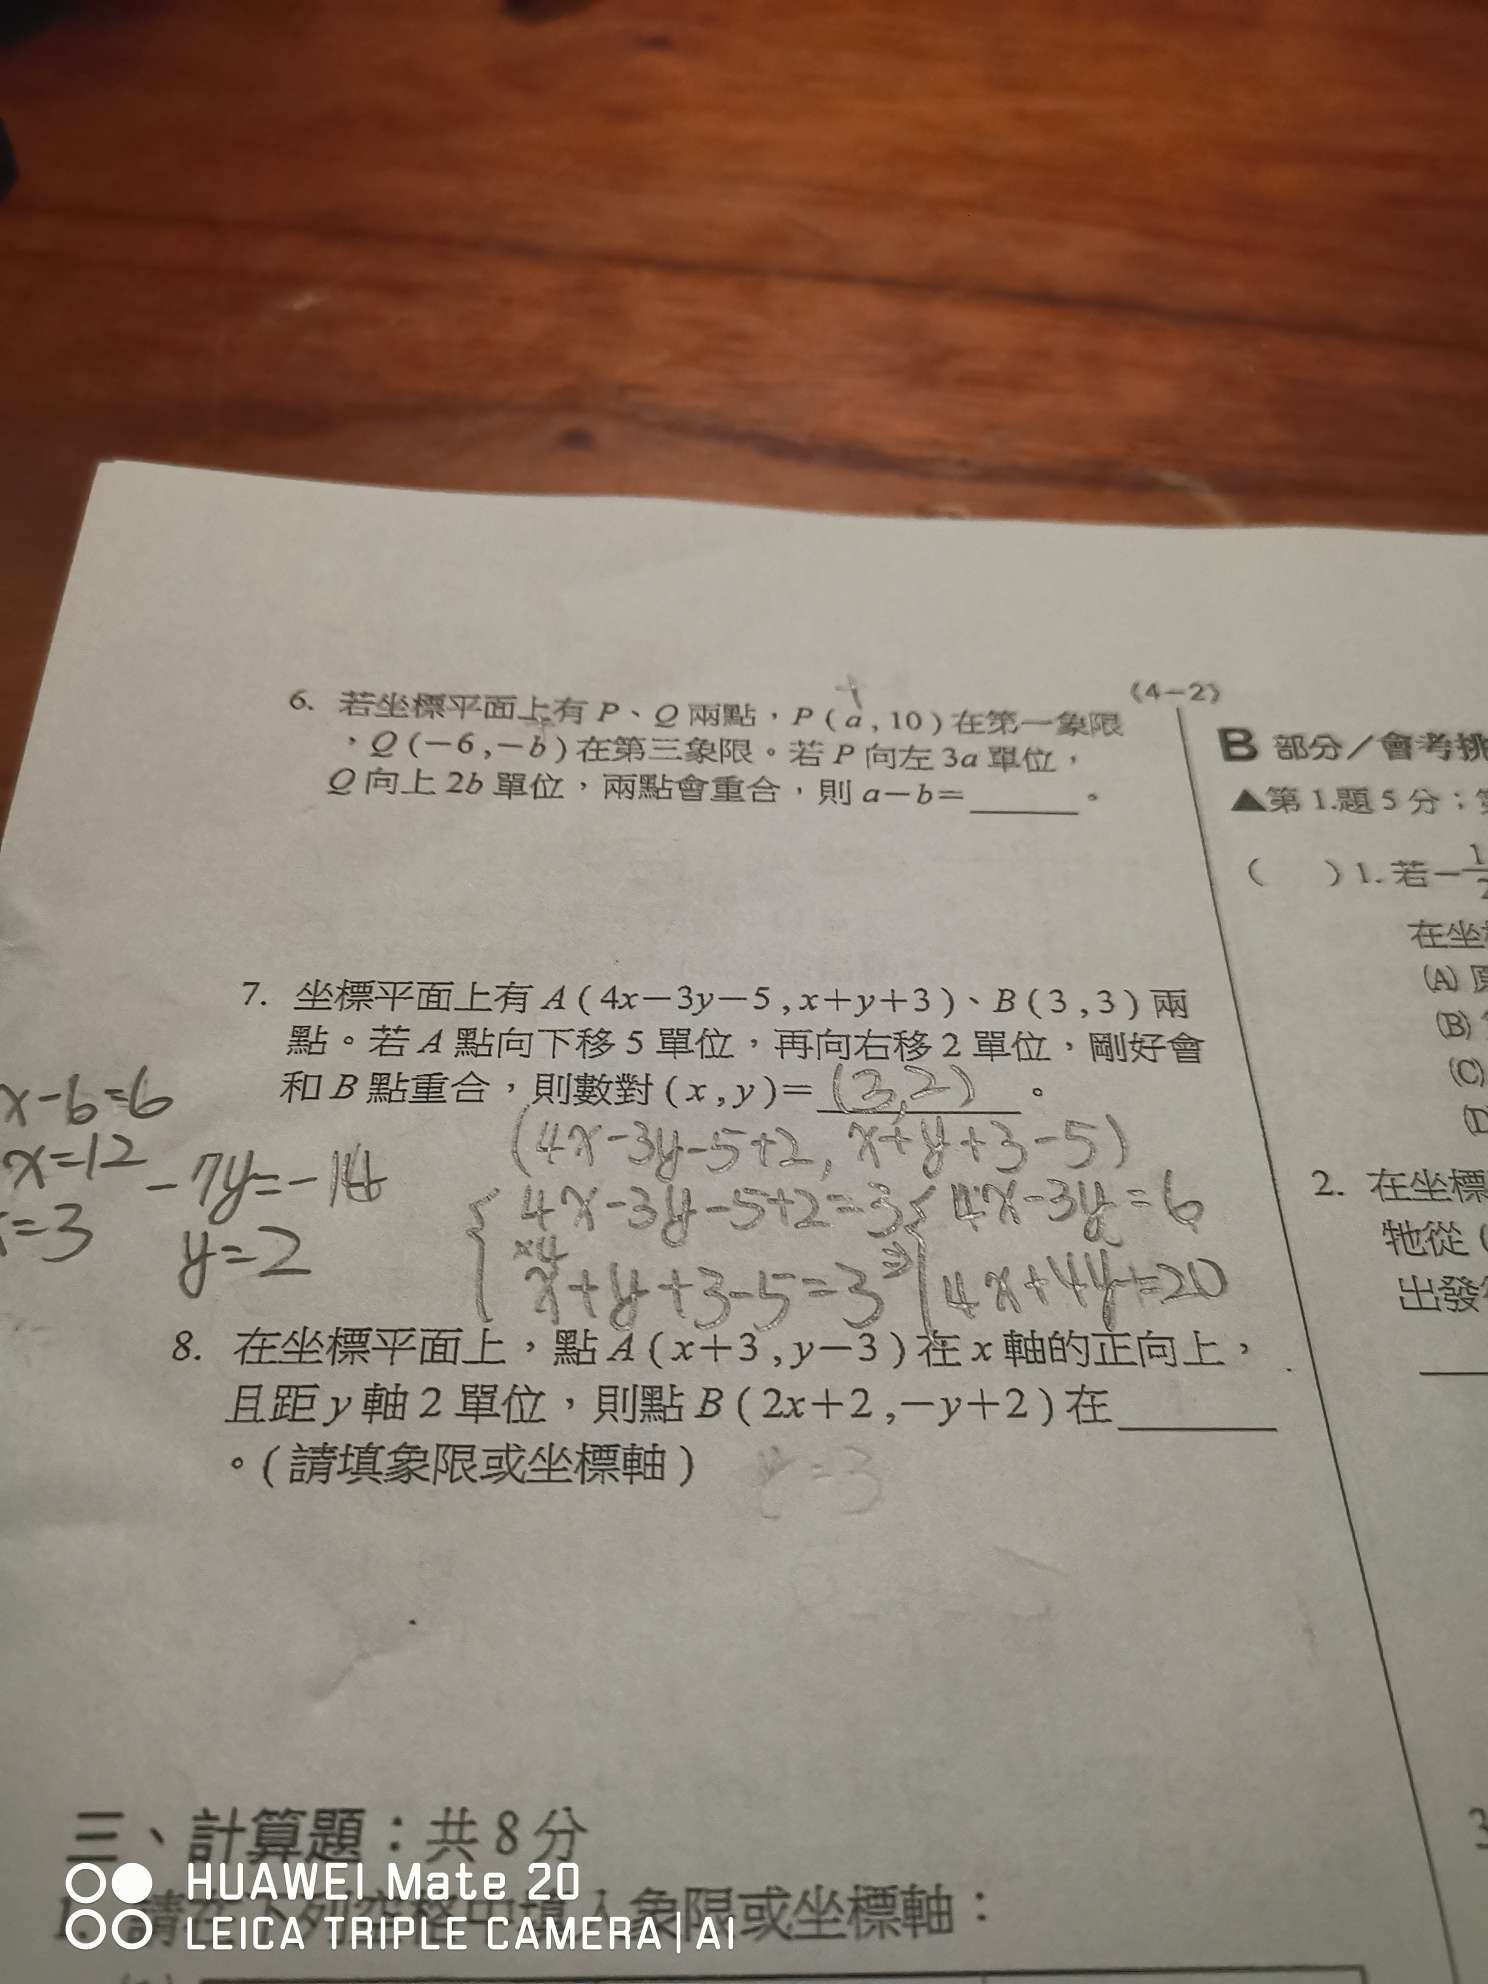 (4-2)
6. 若坐標平面上有 P、Q 兩點，P(a,10)在第一象限
+
，Q(-6,-b)在第三象限。若 P 向左 3a 單位，
Q 向上 2b 單位，兩點會重合，則 a-b=______。
7. 坐標平面上有 A(4x-3y-5,x+y+3)、B(3,3)兩
點。若 A 點向下移 5 單位，再向右移 2 單位，剛好會
和 B 點重合，則數對(x,y)=(3,2)。
(4x-3y-5+2, x+y+3-5)
4x-3y-5+2=3
×4
x+y+3-5=3
⇒
4x-3y=6
4x+4y=20
x-6=6
x=12
=3
-7y=-14
y=2
8. 在坐標平面上，點 A(x+3,y-3)在 x 軸的正向上，
且距 y 軸 2 單位，則點 B(2x+2,-y+2)在______
。(請填象限或坐標軸)
y=3
三、計算題：共 8 分
請在下列空格中填入象限或坐標軸：
B 部分／會考挑
▲第 1.題 5 分；
( )1. 若-
在坐
(A)
(B)
(C)
2. 在坐標
牠從(
出發
3
HUAWEI Mate 20
LEICA TRIPLE CAMERA | AI